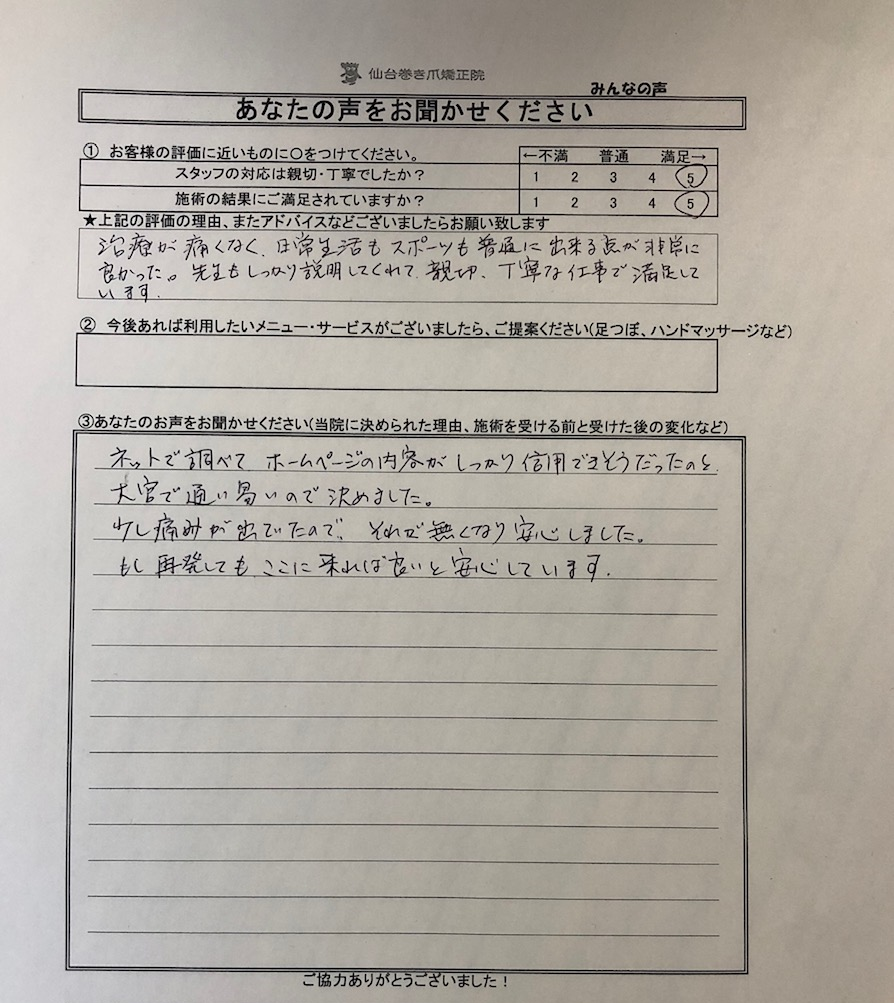 仙台巻き爪矯正院
みんなの声
あなたの声をお聞かせください
① お客様の評価に近いものに○をつけてください。 ←不満 普通 満足→
スタッフの対応は親切・丁寧でしたか? 1 2 3 4 5
施術の結果にご満足されていますか? 1 2 3 4 5
★上記の評価の理由、またアドバイスなどございましたらお願い致します
治療が痛くなく、日常生活もスポーツも普通に出来る点が非常に
良かった。先生もしっかり説明してくれて、親切、丁寧な仕事で満足して
います。
② 今後あれば利用したいメニュー・サービスがございましたら、ご提案ください(足つぼ、ハンドマッサージなど)
③あなたのお声をお聞かせください(当院に決められた理由、施術を受ける前と受けた後の変化など)
ネットで調べて ホームページの内容がしっかり信用できそうだったのと、
大宮で通い易いので決めました。
少し痛みが出ていたので、それが無くなり安心しました。
もし再発しても、ここに来れば良いと安心しています。
ご協力ありがとうございました!